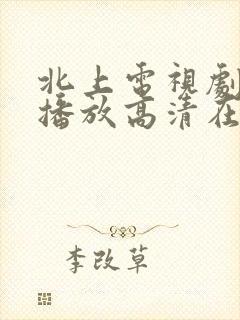 北上電視劇
播放高清在
李改草